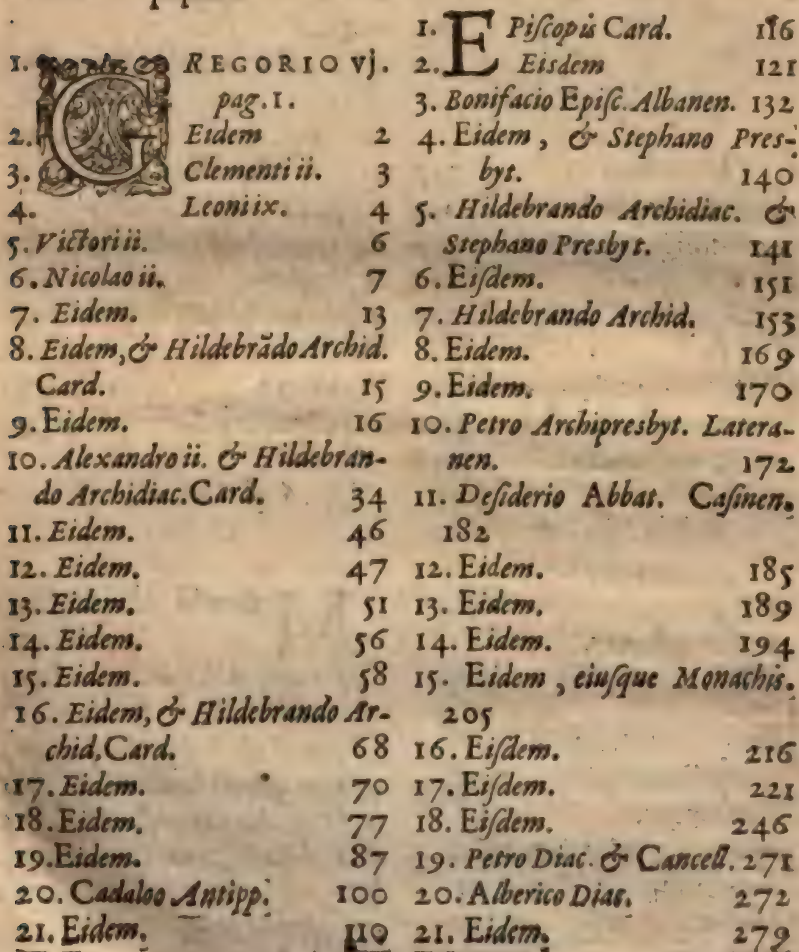 1. GREGORIO vj.
pag. 1.
2. Eidem 2
3. Clementi ii. 3
4. Leoni ix. 4
5. Victori ii. 6
6. Nicolao ii. 7
7. Eidem. 13
8. Eidem, & Hildebrādo Archid.
Card. 15
9. Eidem. 16
10. Alexandro ii. & Hildebran-
do Archidiac. Card. 34
11. Eidem. 46
12. Eidem. 47
13. Eidem. 51
14. Eidem. 56
15. Eidem. 58
16. Eidem, & Hildebrando Ar-
chid. Card. 68
17. Eidem. 70
18. Eidem. 77
19. Eidem. 87
20. Cadaloo Antipp. 100
21. Eidem. 110
1. EPiſcopis Card. 116
2. Eisdem 121
3. Bonifacio Epiſc. Albanen. 132
4. Eidem, & Stephano Pres-
byt. 140
5. Hildebrando Archidiac. &
Stephano Presbyt. 141
6. Eiſdem. 151
7. Hildebrando Archid. 153
8. Eidem. 169
9. Eidem. 170
10. Petro Archipresbyt. Latera-
nen. 172
11. Deſiderio Abbat. Caſinen.
182
12. Eidem. 185
13. Eidem. 189
14. Eidem. 194
15. Eidem, eiuſque Monachis.
205
16. Eiſdem. 216
17. Eiſdem. 221
18. Eiſdem. 246
19. Petro Diac. & Cancell. 271
20. Alberico Diac. 272
21. Eidem. 279